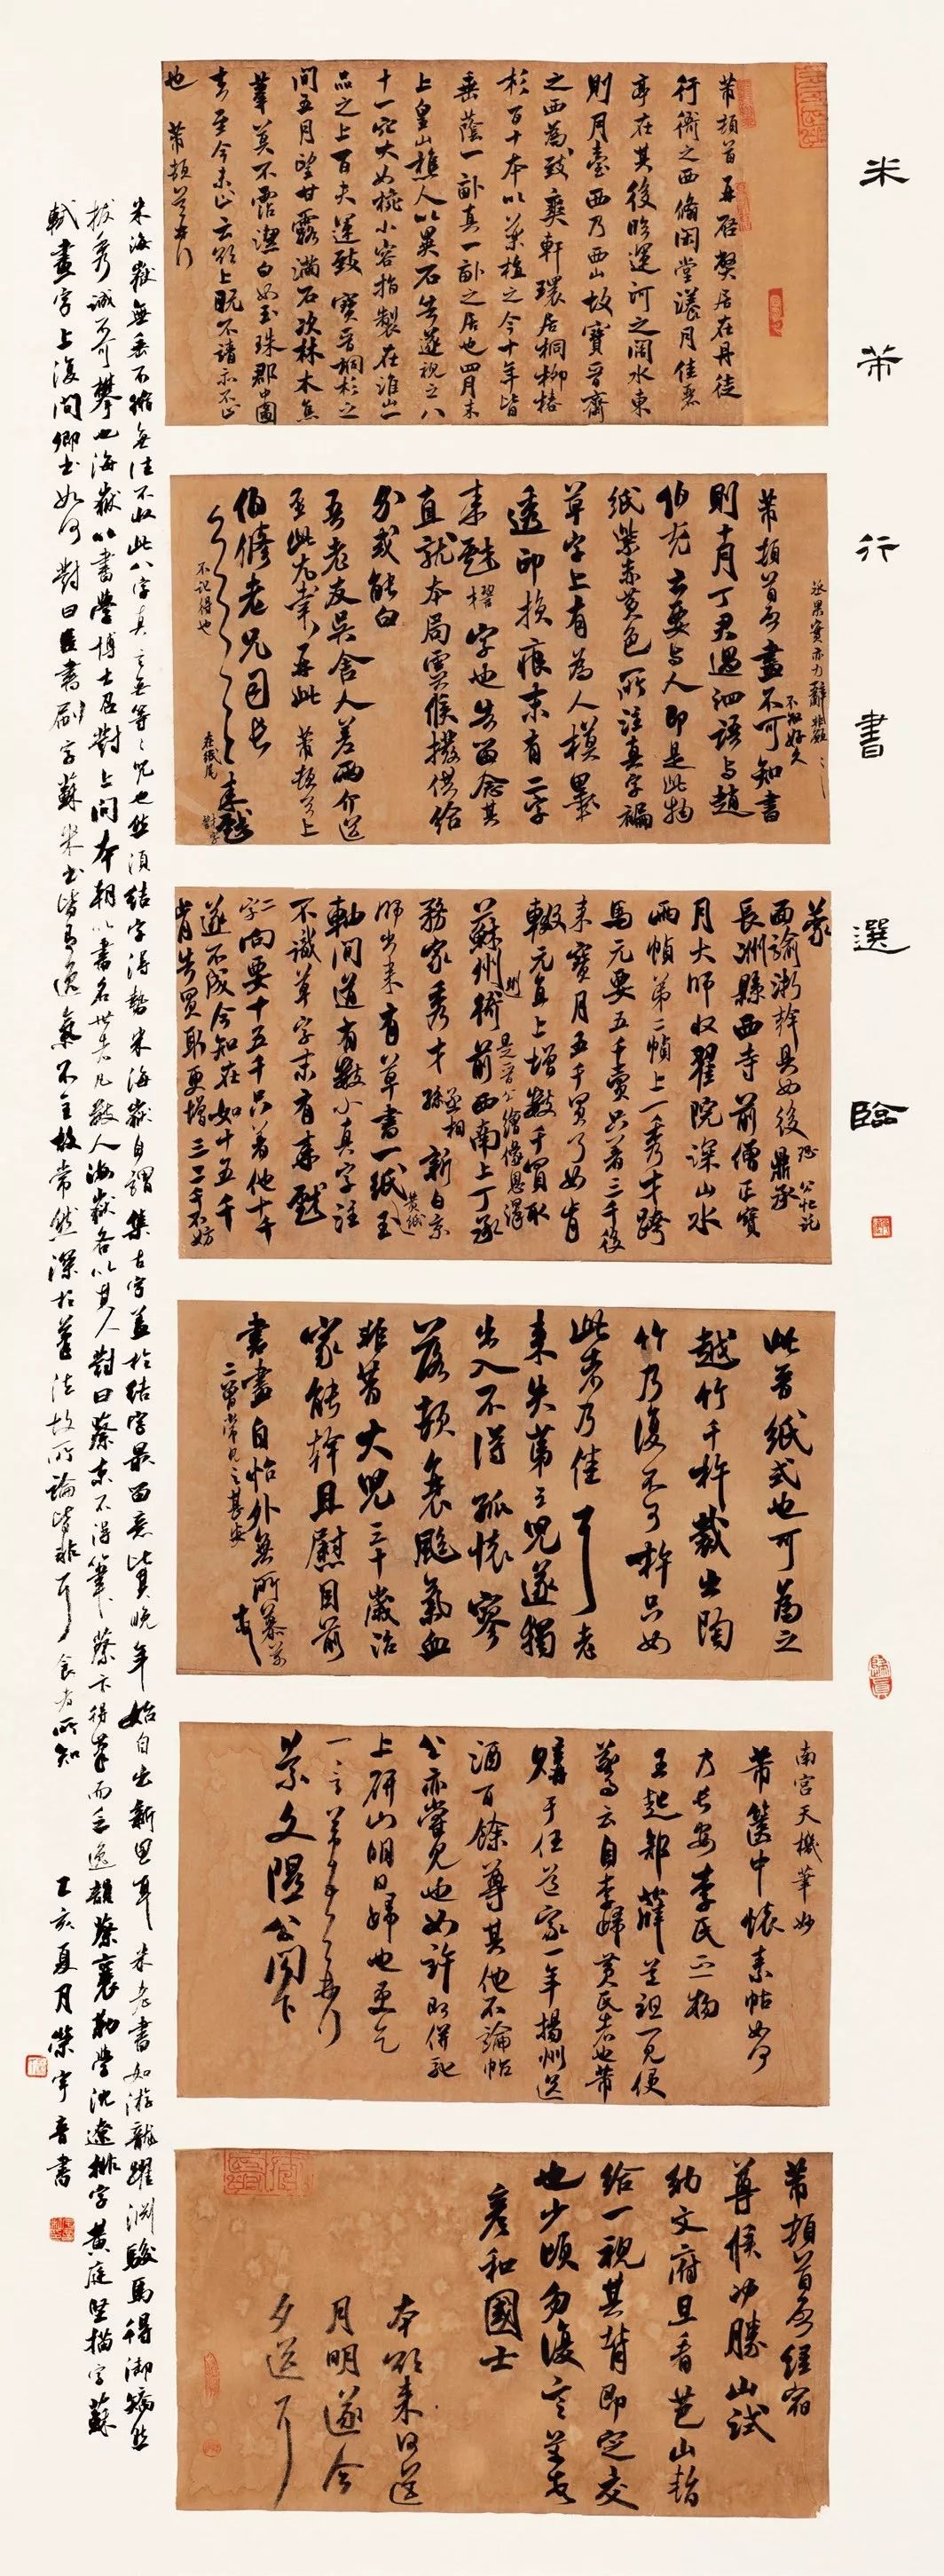 米芾行書選臨
芾頓首再啟弊居在丹徒
行衙之西脩閑堂漾月佳麗
亭在其後臨運河之闊水東
則月臺西乃西山故寶晉齋
之西為致爽軒環居桐柳椿
杉百十本以藥植之今十年皆
垂蔭一畝真一畝之居也四月末
上皇山樵人以異石告遂視之八
十一穴大如椀小容指製在淮山一
品之上百夫運致寶晉桐杉之
間五月望甘露滿石次林木焦
葦莫不霑潔白如玉珠郡中圖
去至今未止云欲上既不請亦不止
也 芾頓首再行
丞果實亦力辭
不淑好久
芾頓首再啟畫不可知書
則十月丁君過泗語與趙
伯充云要與人即是此物
紙紫赤黃色所注真字褊
草字上有為人模墨
透印損痕末有二字
來戲櫂字也告留念其
直就本局雲候撥供給
分或能白
吾老友吳舍人差兩介送
至此尤幸再此 芾頓首上
伯脩老兄司長
不記得也
在紙尾
篆
西諭浙幹具如後 鼎承
長洲縣西寺前僧正寶
月大師收翟院深山水
兩幀第二幀上一秀才跨
馬元要五千賣只著三千後
來寶月五千買了如肯
輟元直上增數千買取
蘇州衙前西南上丁承
務家秀才孫 新自京
師出來有草書一紙
軸間道有數小真字注
不識草字末有來戲
二字向要十五千只着他十千
遂不成今知在如十五千
肯告買取更增三二千不妨
此晉紙式也可為之
越竹千杵裁出陶
竹乃復不可杵只如
此者乃佳耳老
來失第三兒遂獨
出入不得孤懷寥
落頓衰颰氣血
非昔大兒三十歲治
家能幹且慰目前
書畫自怡外無所慕芾
二曾常見之甚安
南宮天機筆妙
芾篋中懷素帖如何
乃長安李氏之物
王起部薛道祖一見便
驚云自李歸黃氏者也芾
購于任道家一年揚州送
酒百餘尊其他不論帖
公亦嘗見也如許即併馳
上研山明日歸也更乞
一言芾頓首再行
景文隰公閣下
芾頓首啟經宿
尊候沖勝山試
納文府且看芭山暫
給一視其背即定交
也少頃勿復言芾頓首
彥和國士
本欲來日送
月明遂今
夕送耳
米海嶽無垂不縮無往不收此八字真言無等等咒也然須結字得勢米海嶽自謂集古字蓋於結字最留意比其晚年始自出新意耳 米老書如游龍躍淵駿馬得御矯然
拔秀誠不可攀也海嶽以書學博士召對上問本朝以書名世者凡數人海嶽各以其人對曰蔡京不得筆蔡卞得筆而乏逸韻蔡襄勒字沈遼排字黃庭堅描字蘇
軾畫字上復問卿書如何對曰臣書刷字蘇米書皆有逸氣不主故常然深於筆法故所論皆非耳食者所知 乙亥夏月